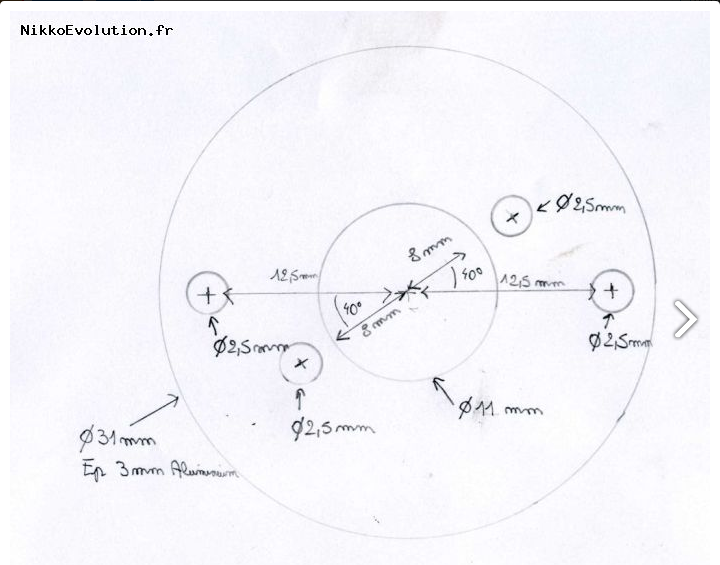 NikkoEvolution.fr
Ø2,5mm
8 mm
12,5mm
40°
12,5 mm
40°
8 mm
Ø2,5mm
Ø2,5mm
Ø11 mm
Ø2,5mm
Ø31mm
Ep 3mm Aluminium